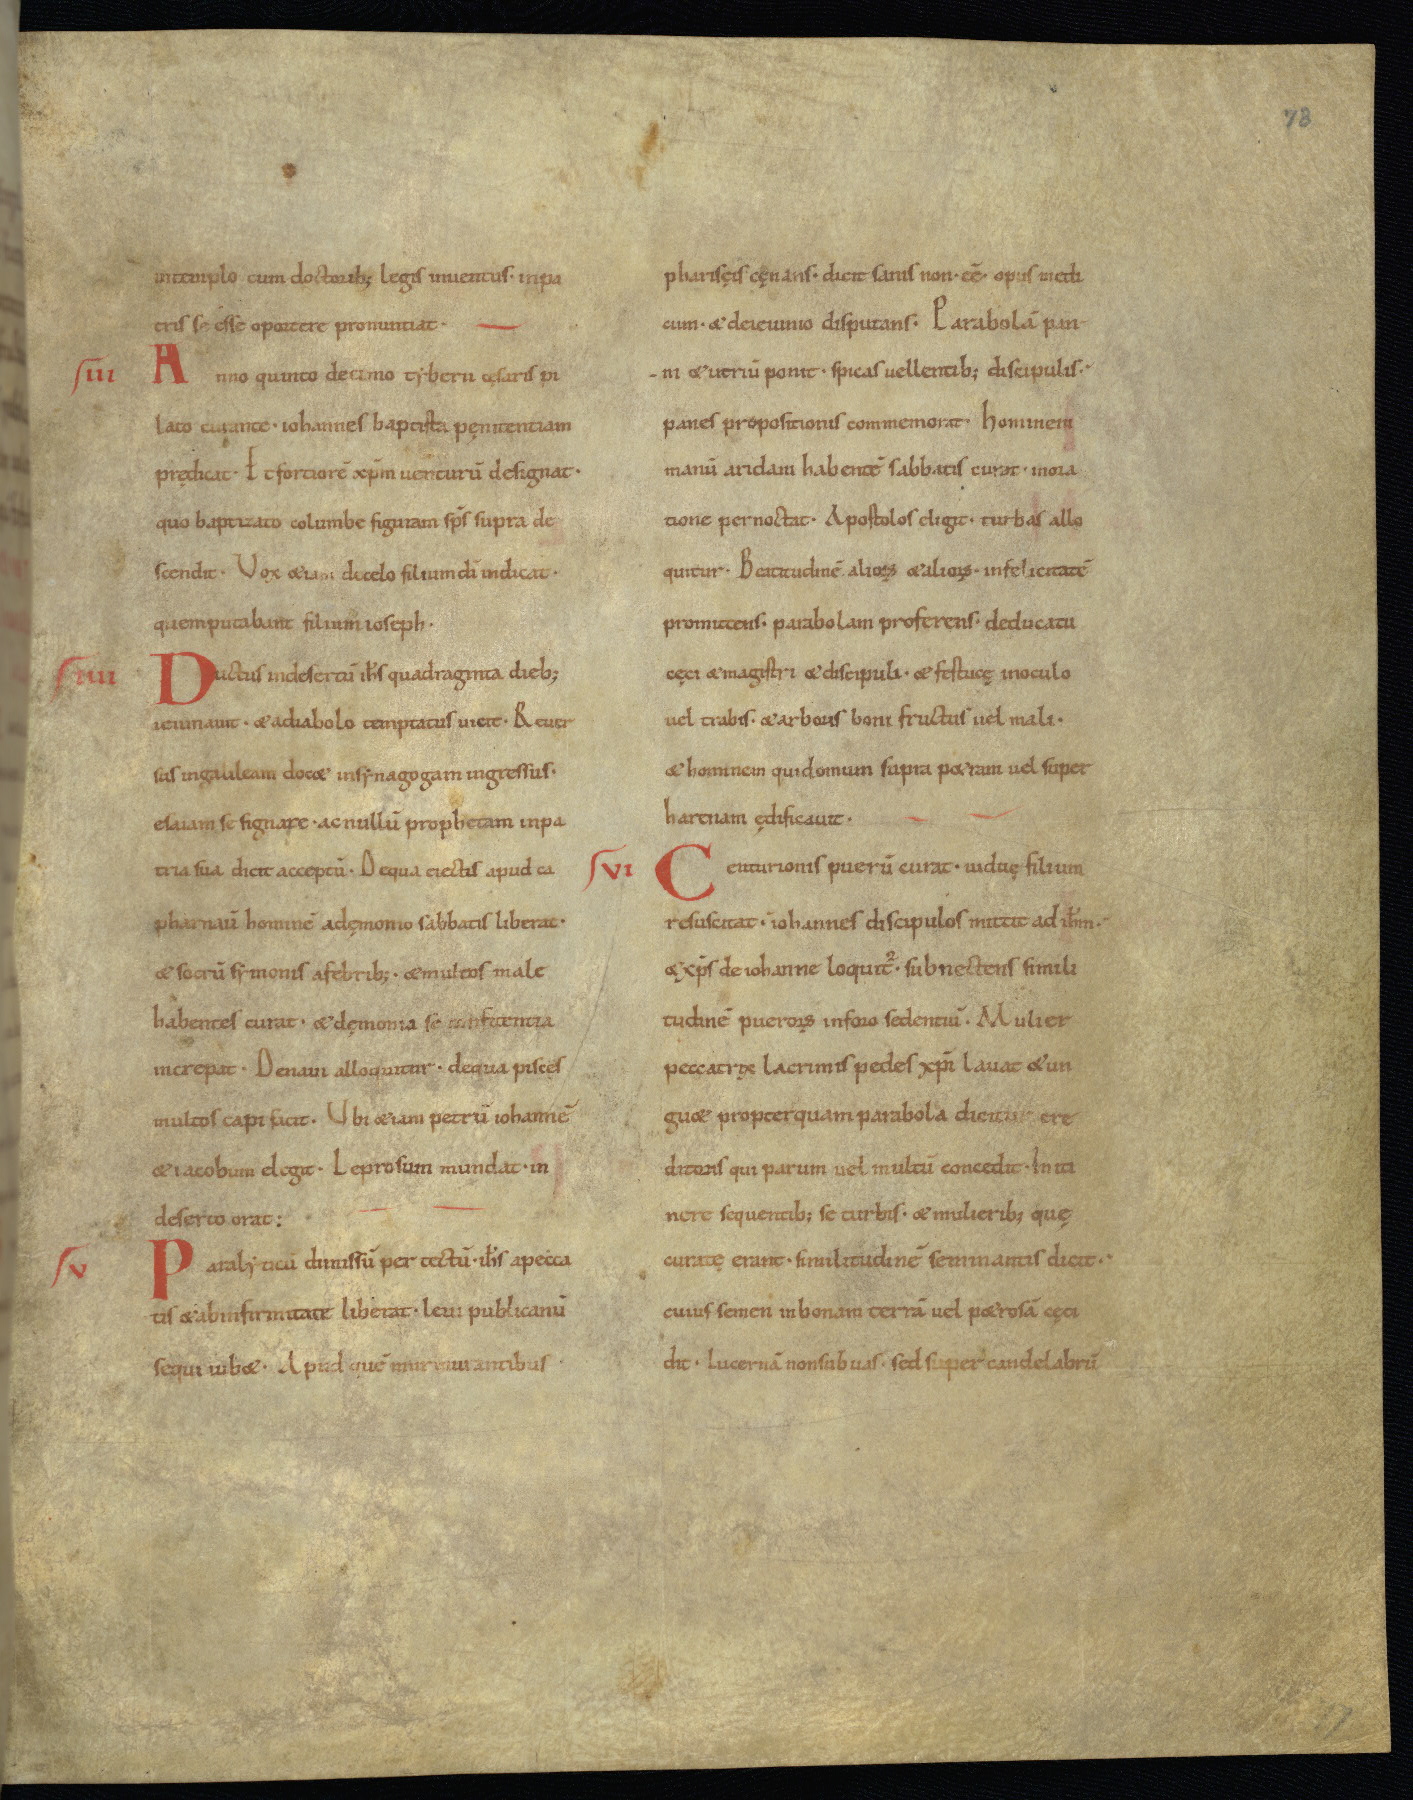 78
intemplo cum doctorib; legis inuentus· inpa
tris se esse oportere pronuntiat·
ſiii Anno quinto decimo tyberii cęsaris pi
lato curante· iohannes baptista pęnitentiam
prędicat· Et fortiorē xp̄m uenturū designat·
quo baptizato columbe figuram sp̄s supra de
scendit· Vox &iam decelo filium dī indicat·
quemputabant filium ioseph·
ſiiii Ductus indesertū ih̄s quadraginta dieb;
ieiunauit· &adiabolo temptatus uicit· Reuer
sus ingalileam doc& insynagogam ingressus·
esaiam se signare· ac nullū prophetam inpa
tria sua dicit acceptū· Dequa eiectis apud ca
pharnaū hominē adęmonio sabbatis liberat·
& socrū symonis afebrib;· &multos male
habentes curat· &dęmonia se confitentia
increpat· Denaui alloquitur· dequa pisces
multos capi facit· Vbi &iam petrū iohannē
&iacobum elegit· Leprosum mundat· in
deserto orat:
ſv Paralyticū dimissū per tectū· ih̄s apecca
tis &abinfirmitate liberat· leui publicanū
sequi iub&· Apud quē murmurantibus
pharisęis cęnans· dicit sanis non· eē· opus medi
cum· &deieiunio disputans· Parabolā pan
ni &utriū ponit· spicas uellentib; discipulis·
panes propositionis commemorat· hominem
manū aridam habentē sabbatis curat· inora
tione pernoctat· Apostolos eligit· turbas allo
quitur· Beatitudinē alioꝝ &alioꝝ· infelicitatē
promittens· parabolam proferens· deducatu
cęci &magistri &discipuli· & festucę inoculo
uel trabis· &arboris boni fructus uel mali·
&hominem quidomum supra p&ram uel super
harenam ędificauit·
ſvi Centurionis puerū curat· uiduę filium
resuscitat· iohannes discipulos mittit ad ih̄m·
&xp̄s de iohanne loquit᷑· subnectens simili
tudinē pueroꝝ inforo sedentiū· Mulier
peccatrix lacrimis pedes xp̄i lauat &un
gu& propterquam parabola dicitur cre
ditoris qui parum uel multū concedit· Initi
nere sequentib; se turbis· &mulierib; quę
curatę erant· similitudinē seminantis dicit·
cuius semen inbonam terrā uel p&rosā cęci
dit· Lucernā nonsub uas· sed super candelabrū